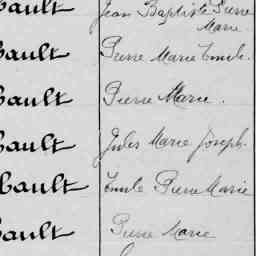 bault Jean Baptiste Pierre
Marie
bault Pierre Marie Emile.
bault Pierre Marie.
bault Jules Marie Joseph.
bault Emile Pierre Marie
bault Pierre Marie